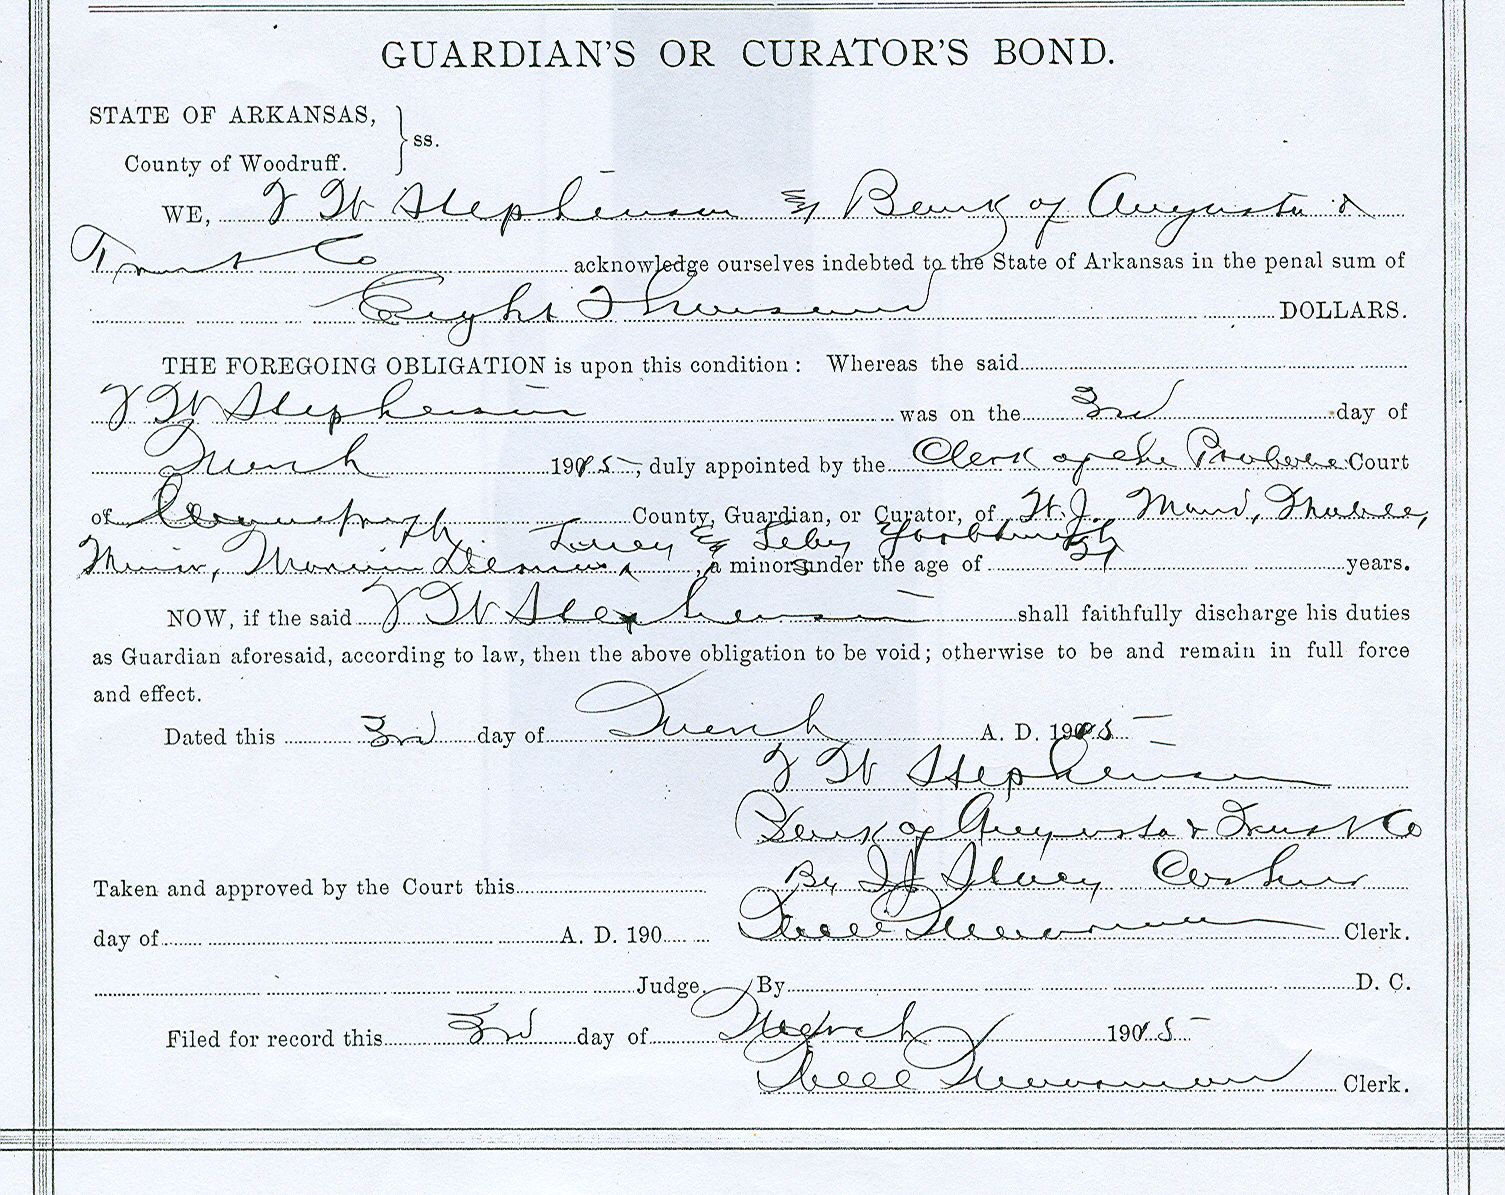 GUARDIAN'S OR CURATOR'S BOND.
STATE OF ARKANSAS,
ss.
County of Woodruff.
WE, T W Stephenson & Bank of Augusta &
Trust Co acknowledge ourselves indebted to the State of Arkansas in the penal sum of
Eight Thousand DOLLARS.
THE FOREGOING OBLIGATION is upon this condition: Whereas the said
T W Stephenson was on the 3rd day of
March 1905, duly appointed by the Clerk of the Probate Court
of County, Guardian, or Curator, of
& a minors under the age of 21 years.
NOW, if the said T W Stephenson shall faithfully discharge his duties
as Guardian aforesaid, according to law, then the above obligation to be void; otherwise to be and remain in full force
and effect.
Dated this 3rd day of March A. D. 1905
T W Stephenson
Bank of Augusta & Trust Co
Taken and approved by the Court this By Stacy Cashier
day of A. D. 190 Clerk.
Judge. By D. C.
Filed for record this 3rd day of March 1905
Clerk.